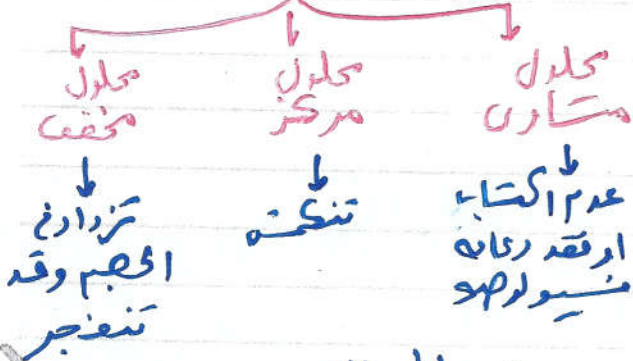 محلول
متساوى
عدم اكتساب
او فقد
محلول
مركز
تنكمش
محلول
مخفف
تزداد فى
الحجم وقد
تنفجر